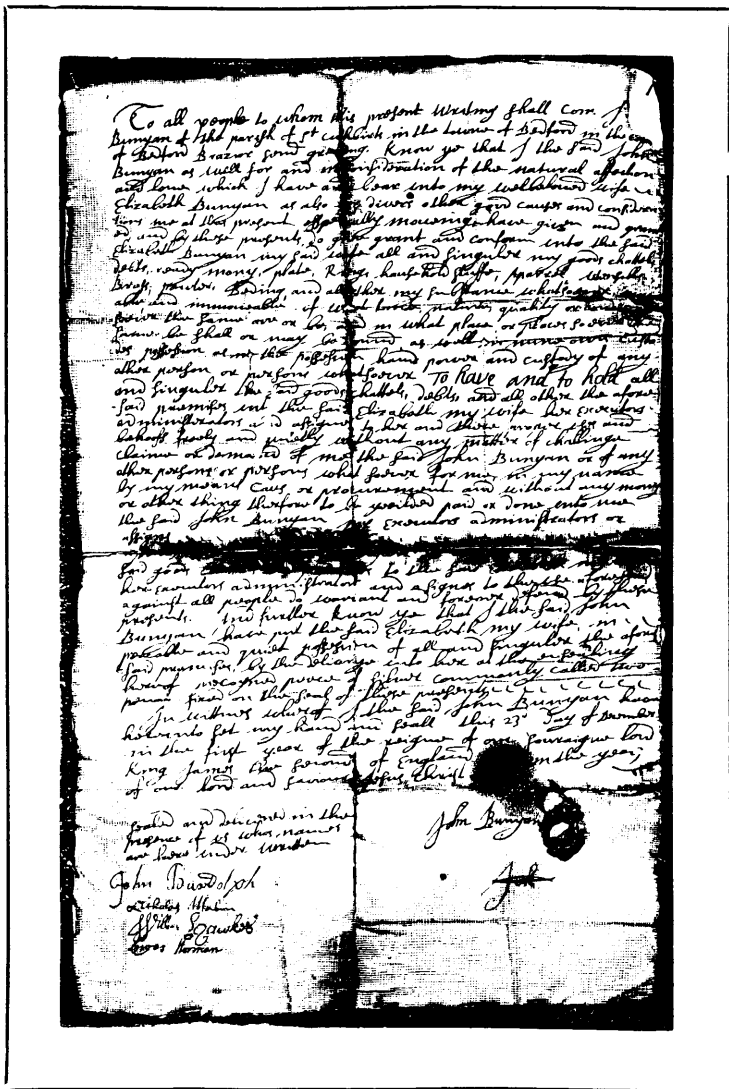 To all people to whom this present Writing shall Com J
Bunyan of the parish of St Cuthbirts in the towne of Bedford in the
of Bedford Brazier send greeting. Know ye that I the said John
Bunyan as well for and in consideration of the natural affection
and loue which I have and bear vnto my welbeloued wife
Elizabeth Bunyan as also for divers other good causes and considera
tions me at this present especially moueinge have given and grant
ed and by these presents do give grant and conform vnto the said
Elizabeth Bunyan my said wife all and singuler my goods chattels
debts, ready mony, plate, Rings, houshold stuffe, Aparrel Utensills
Brass, peuter, Beding, and all other my substance whatsoever
able and immoueable, of what kinde, nature, quality or
soever the same are or be, and in what place or places soever the
same be shall or may be found as well in mine own
possession as in the possession hand power and custody of any
other person or persons whatsoever To have and to hold all
and singuler the said goods, chattels, debts, and all other the afore
said premises vnto the said Elizabeth my wife her executors
administrators and assignes to her and there proper vses and
behoofs freely and quietly without any matter of challinge
claime or demand of me the said John Bunyan or of any
other persons or persons what soever for me in my name
by my means Caus or procurement and without any mony
or other thing therfore to be yeilded paid or done vnto me
the said John Bunyan my executors administrators or
assignes
said goods to the said
her executors administrators and assignes to the vse aforesaid
against all people do warrant and forever defend by these
presents. And further know ye that I the said John
Bunyan have put the said Elizabeth my wife in
peaceable and quiet possession of all and singuler the afore
said premises, by the deliverye vnto her at the ensealing
hereof one coyned peece of silver commonly called two
pence fixed on the seal of these presents
In wittnes wherof I the said John Bunyan have
herevnto set my hand and seall this 23d day of December
in the first year of the reigne of our soueraigne lord
King James the second of England in the year
of our lord and saviour Jesus Christ
Sealed and delivered in the
presence of vs whos names
are here vnder written
John Bunyan
John Bardolph
Nicholas Malin
Willm Hawkes
Lewes Norman